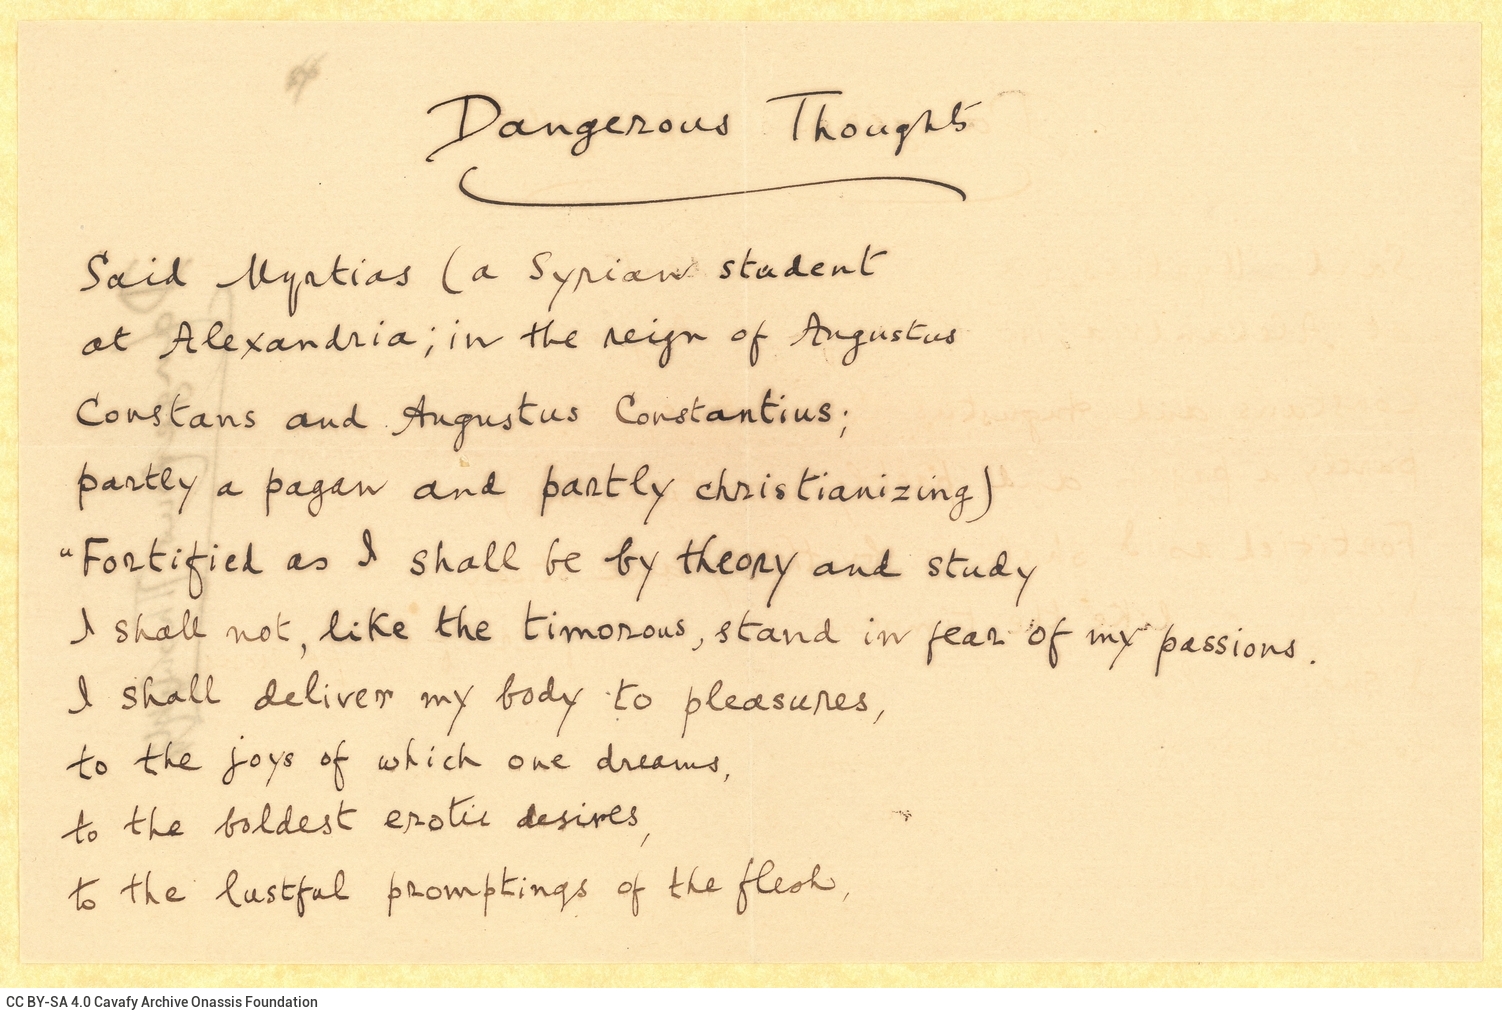 Dangerous Thoughts
Said Myrtias (a Syrian student
at Alexandria; in the reign of Augustus
Constans and Augustus Constantius;
partly a pagan and partly christianizing)
"Fortified as I shall be by theory and study
I shall not, like the timorous, stand in fear of my passions.
I shall deliver my body to pleasures,
to the joys of which one dreams,
to the boldest erotic desires,
to the lustful promptings of the flesh,
CC BY-SA 4.0 Cavafy Archive Onassis Foundation